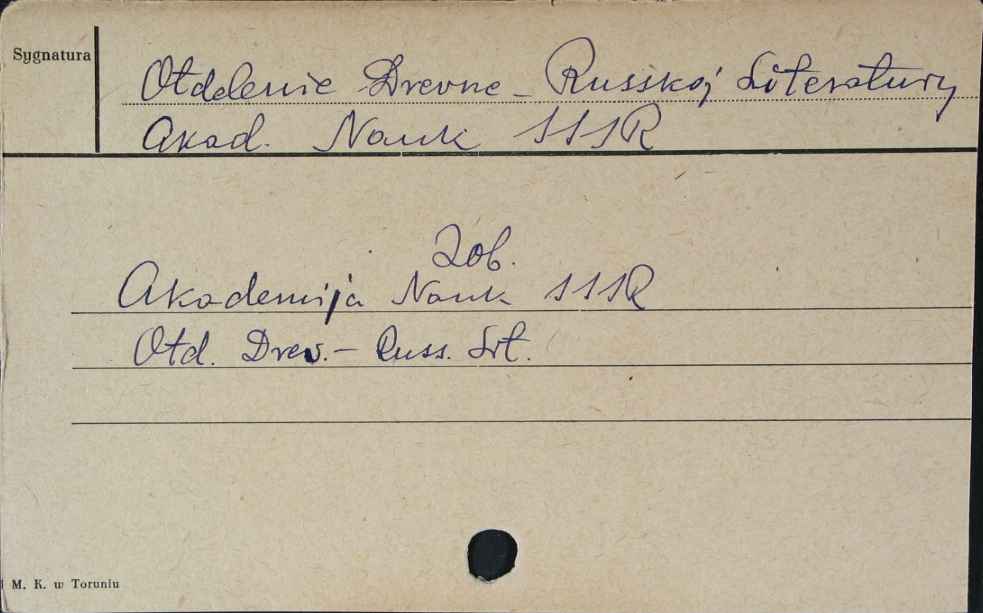 Sygnatura
Otdelenie Drevne - Russkoj Literatury
Akad. Nauk SSSR
Zob.
Akademija Nauk SSSR
Otd. Drev. - Russ. Lit.
M. K. w Toruniu